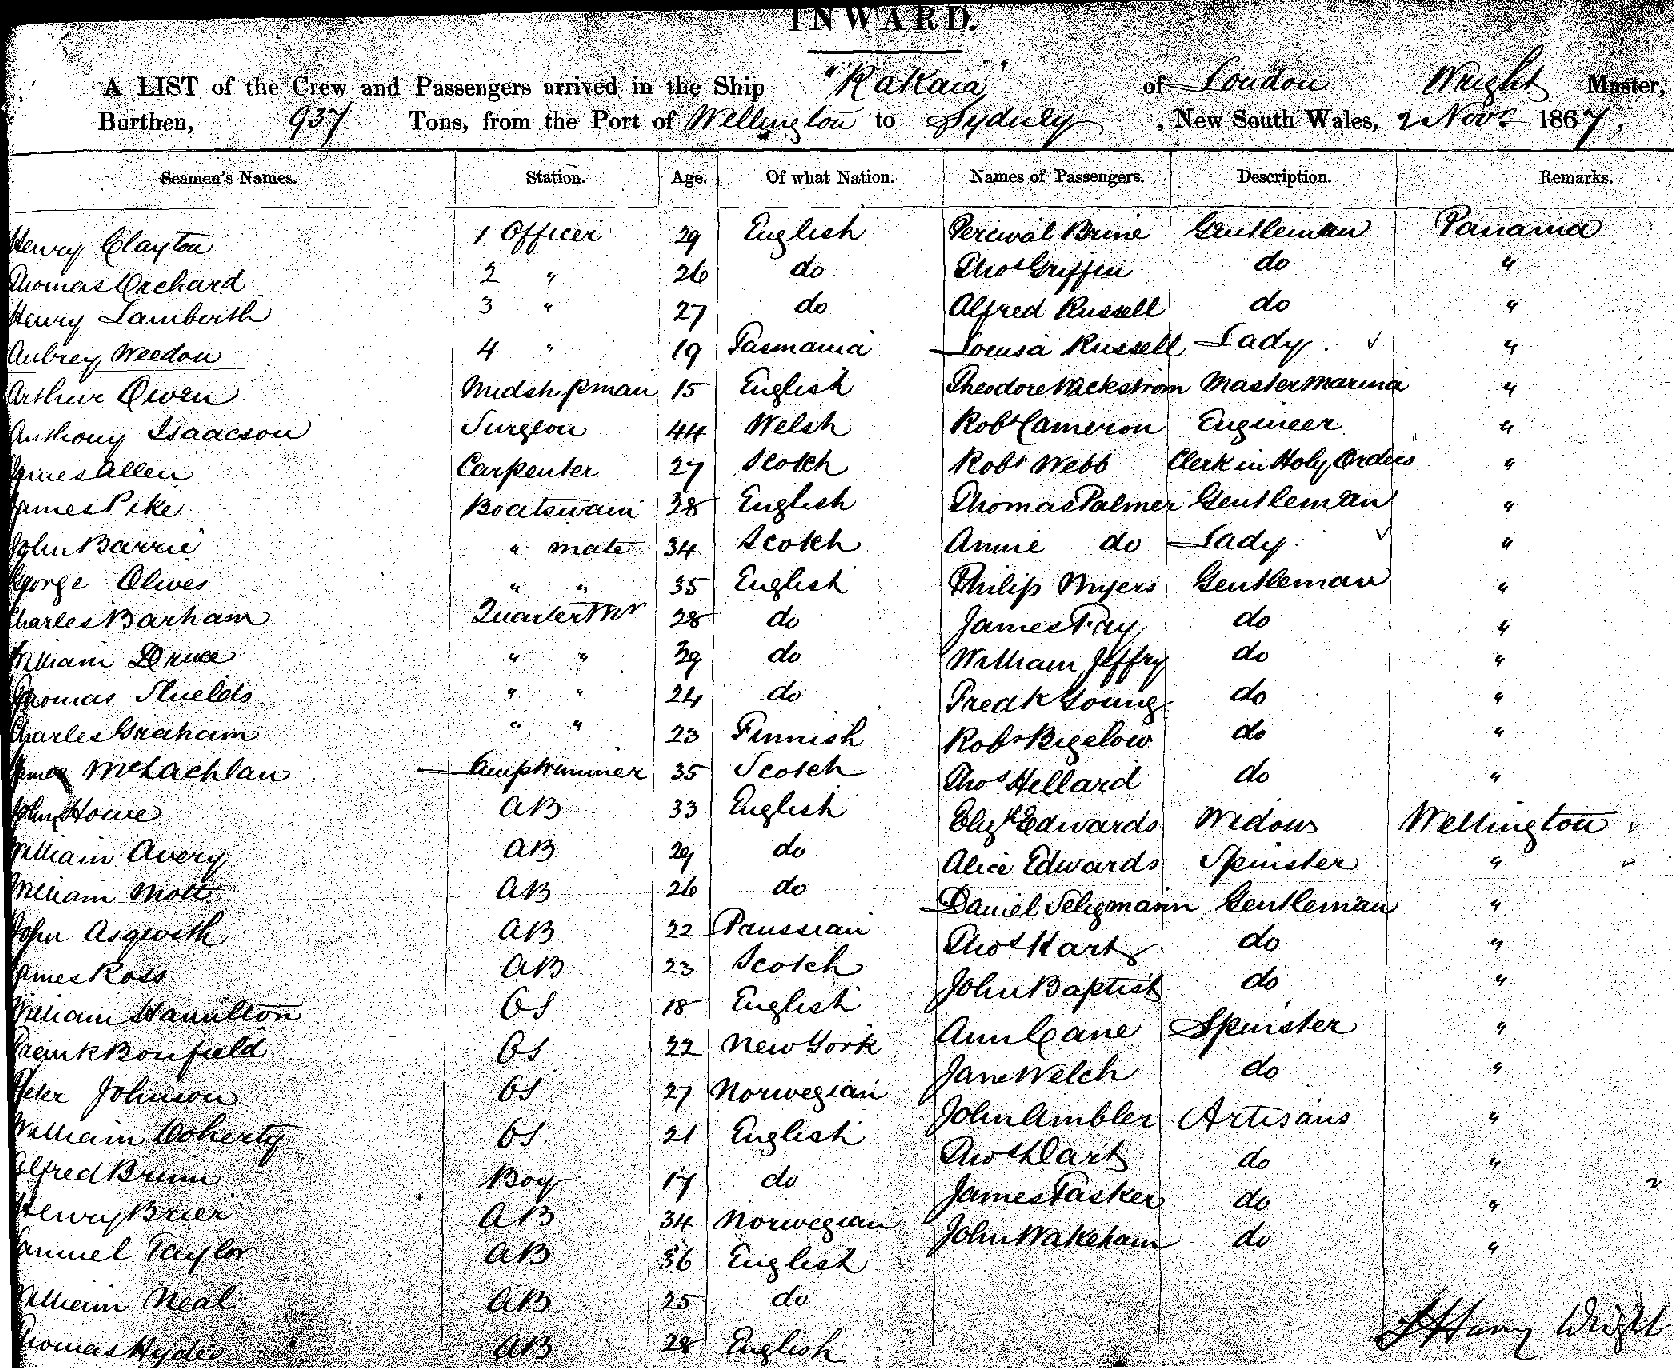 INWARD.
A LIST of the Crew and Passengers arrived in the Ship "Rakaia" of London Wright Master,
Burthen, 937 Tons, from the Port of Wellington to Sydney, New South Wales, 2 Novr 1867,
Seamen's Names. Station. Age. Of what Nation. Names of Passengers. Description. Remarks.
Henry Clayton 1 Officer 29 English Percival Brine Gentleman Panama
Thomas Orchard 2 " 26 do Thos Griffin do "
Henry Lambirth 3 " 27 do Alfred Russell do "
Aubrey Weedon 4 " 19 Tasmania Louisa Russell Lady "
Arthur Owen Midshipman 15 English Theodore Wickstrom Master Marina "
Anthony Isaacson Surgeon 44 Welsh Robt Cameron Engineer "
James Allen Carpenter 27 Scotch Robt Webb Clerk in Holy Orders "
James Pike Boatswain 38 English Thomas Palmer Gentleman "
John Barrie " mate 34 Scotch Annie do Lady "
George Olives " " 35 English Philip Myers Gentleman "
Charles Barham Quarter Mr 28 do James Fay do "
William Druce " " 39 do William Jeffry do "
Thomas Shields " " 24 do Fredk Young do "
Charles Graham " " 23 Finnish Robt Bigelow do "
James McLachlan Lamptrimmer 35 Scotch Thos Hellard do "
John Howe AB 33 English Elizth Edwards Widow Wellington
William Avery AB 29 do Alice Edwards Spinster "
William Mott AB 26 do Daniel Seligmann Gentleman "
John Asgwith AB 22 Paussian Thos Hart do "
James Ross AB 23 Scotch John Baptist do "
William Hamilton OS 18 English Ann Cane Spinster "
Frank Bonfield OS 22 New York Jane Welch do "
Peter Johnson OS 27 Norwegian John Ambler Artisans "
William Doherty OS 21 English Thos Dart do "
Alfred Brunn Boy 17 do James Tasker do "
Henry Brier AB 34 Norwegian John Wakeham do "
Samuel Taylor AB 36 English
William Neal AB 25 do
Thomas Hyde AB 28 English
J Harry Wright